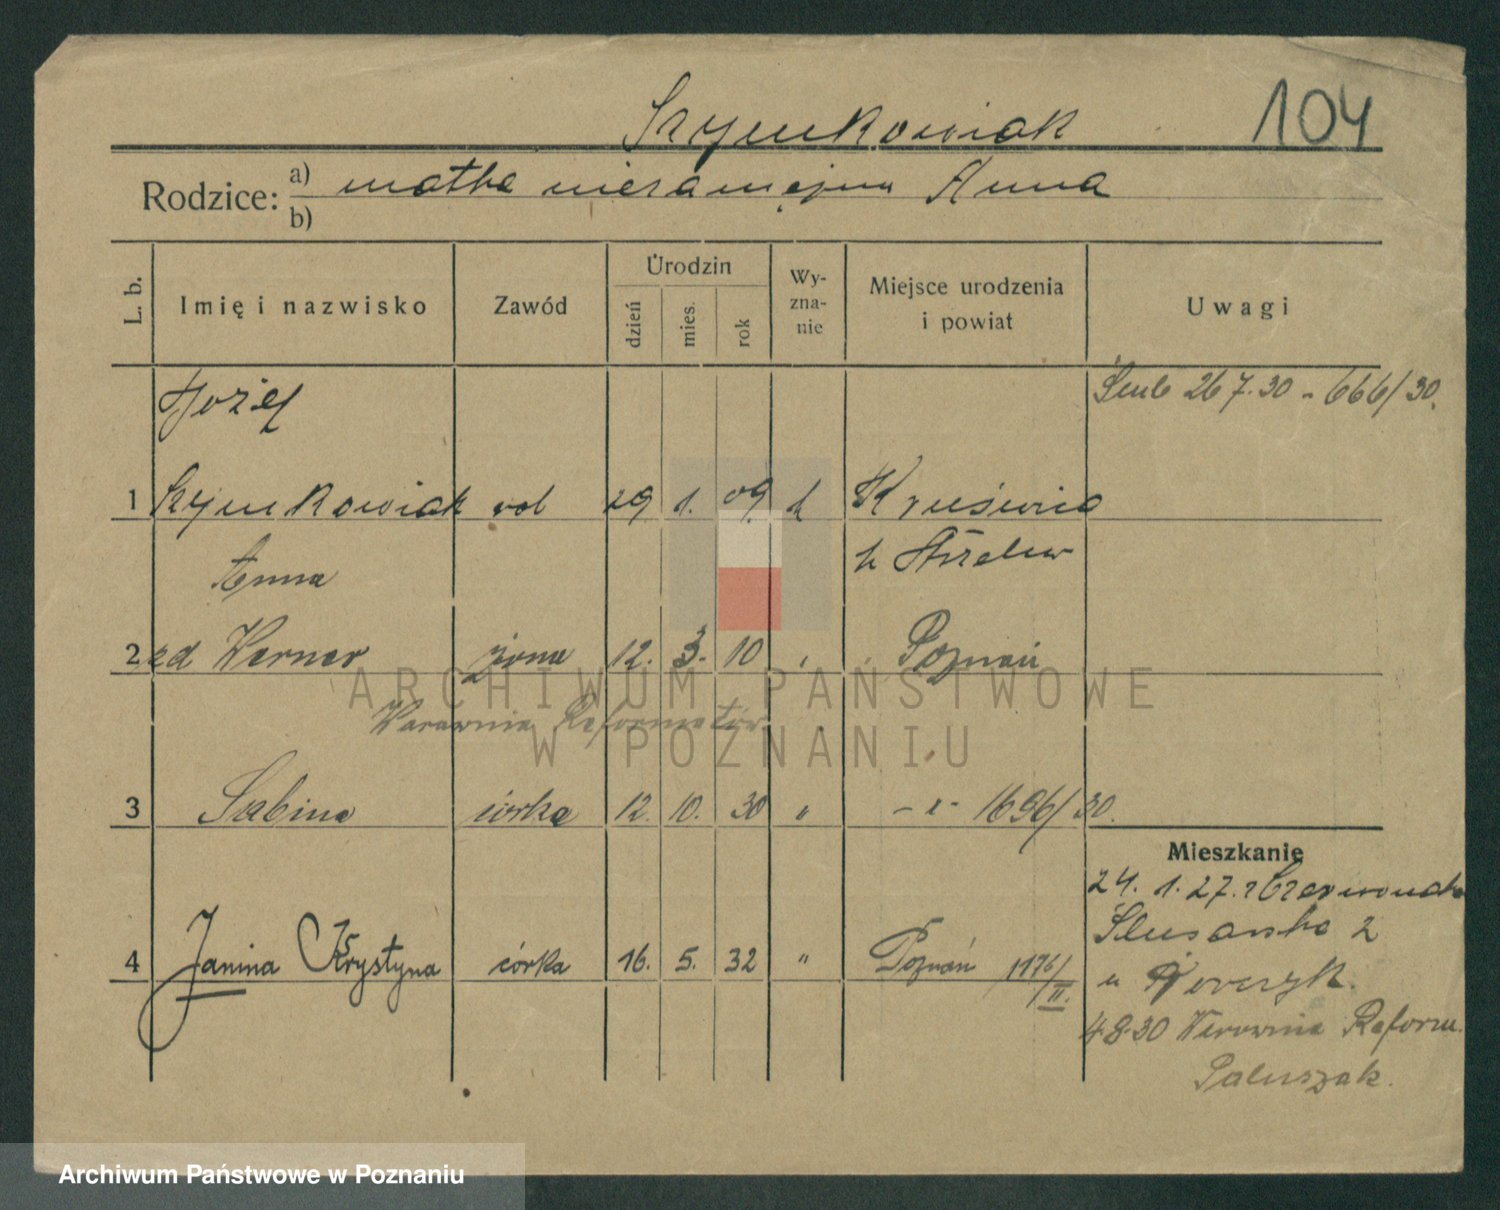 Szymkowiak 104
Rodzice: a) matka niezamężna Anna
b)
L. b. Imię i nazwisko Zawód Urodzin dzień mies. rok Wyznanie Miejsce urodzenia i powiat Uwagi
Józef Ślub 26 7.30 - 666/30.
1 Szymkowiak rob 29 1. 09. k Kruświca
Anna k Strzelna
2 zd Werner żona 12. 3. 10 , Poznań
Warownia Reformatów
3 Sabina córka 12. 10. 30 " 1696/30.
Mieszkanie
24. 1. 27. z Czerwonak
Ślusarska 2
4 Janina Krystyna córka 16. 5. 32 " Poznań 1176/II.
u Korczyk.
4.8.30 Warownia Reform.
Paluszak.
ARCHIWUM PAŃSTWOWE
W POZNANIU
Archiwum Państwowe w Poznaniu